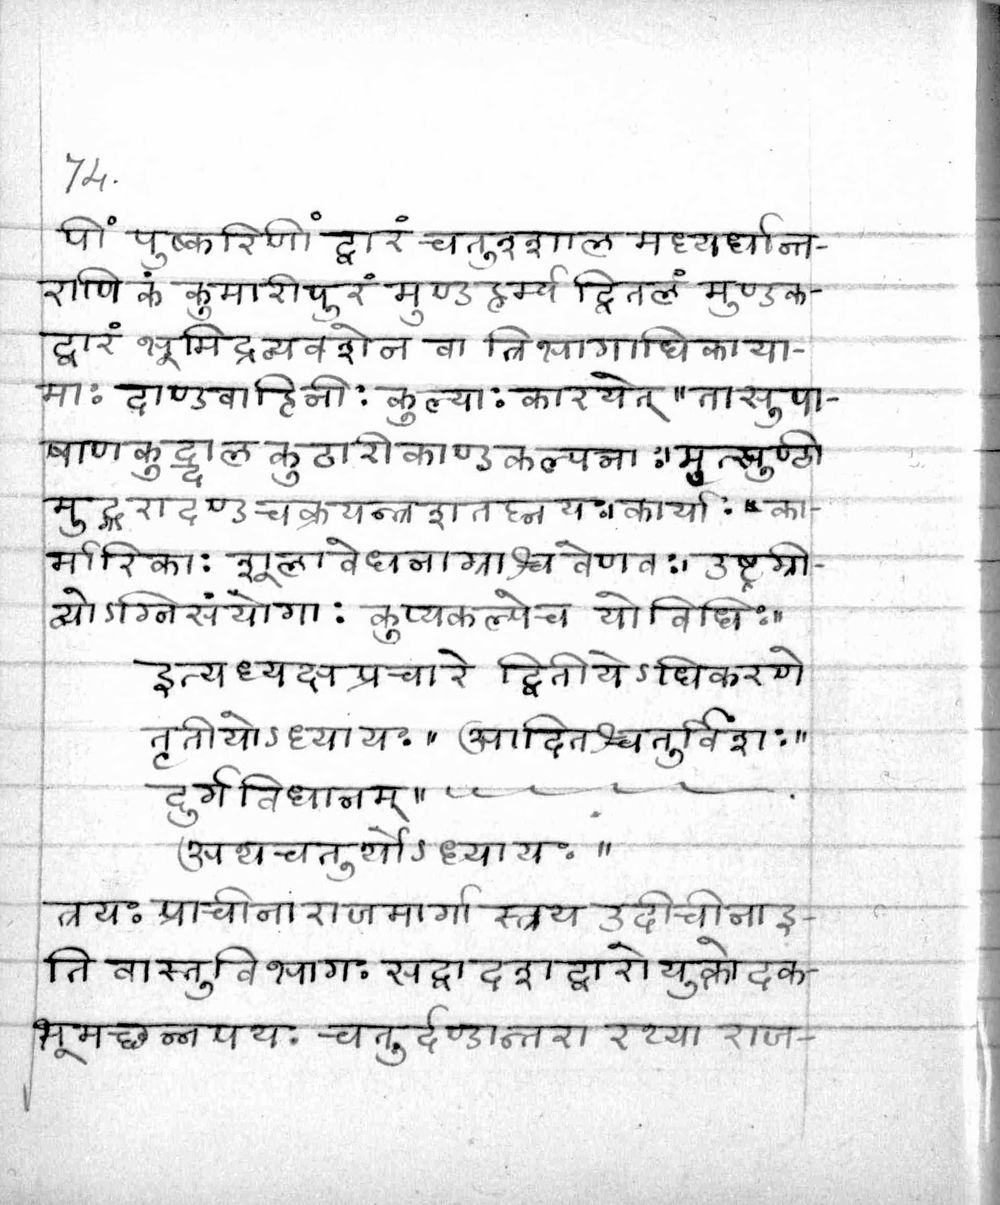 74.
पीं पुष्करिणीं द्वारं चतुश्शाल मध्यर्धान्त-
राणि कं कुमारीपुरं मुण्डहर्म्यं द्वितलं मुण्डक-
द्वारं भूमिद्रव्यवशेन वा त्रिभागाधिकाया-
माः दाण्डवाहिनीः कुल्याः कारयेत् ॥ तासु पा-
षाण कुद्दाल कुठारीकाण्ड कल्पनाः। मुत्सुण्ठी
मुद्गरा दण्ड चक्रयन्त्र शतघ्न यः। कार्याः ॥ का-
र्मारिकाः शूलावेधनाग्राश्च वेणवः। उष्ट्रग्री-
व्योऽग्निसंयोगाः कुप्यकल्पेच योविधिः॥
इत्यध्यक्षप्रचारे द्वितीयेऽधिकरणे
तृतीयोऽध्यायः॥ आदितश्चतुर्विंशः॥
दुर्गविधानम् ॥
अथ चतुर्थोऽध्यायः ॥
त्रयः प्राचीना राजमार्गा स्त्रय उदीचीना इ-
ति वास्तुविभागः सद्वादशद्वारो युक्तोदक-
भूमच्छन्नपथः चतुर्दण्डान्तरा रथ्या राज-